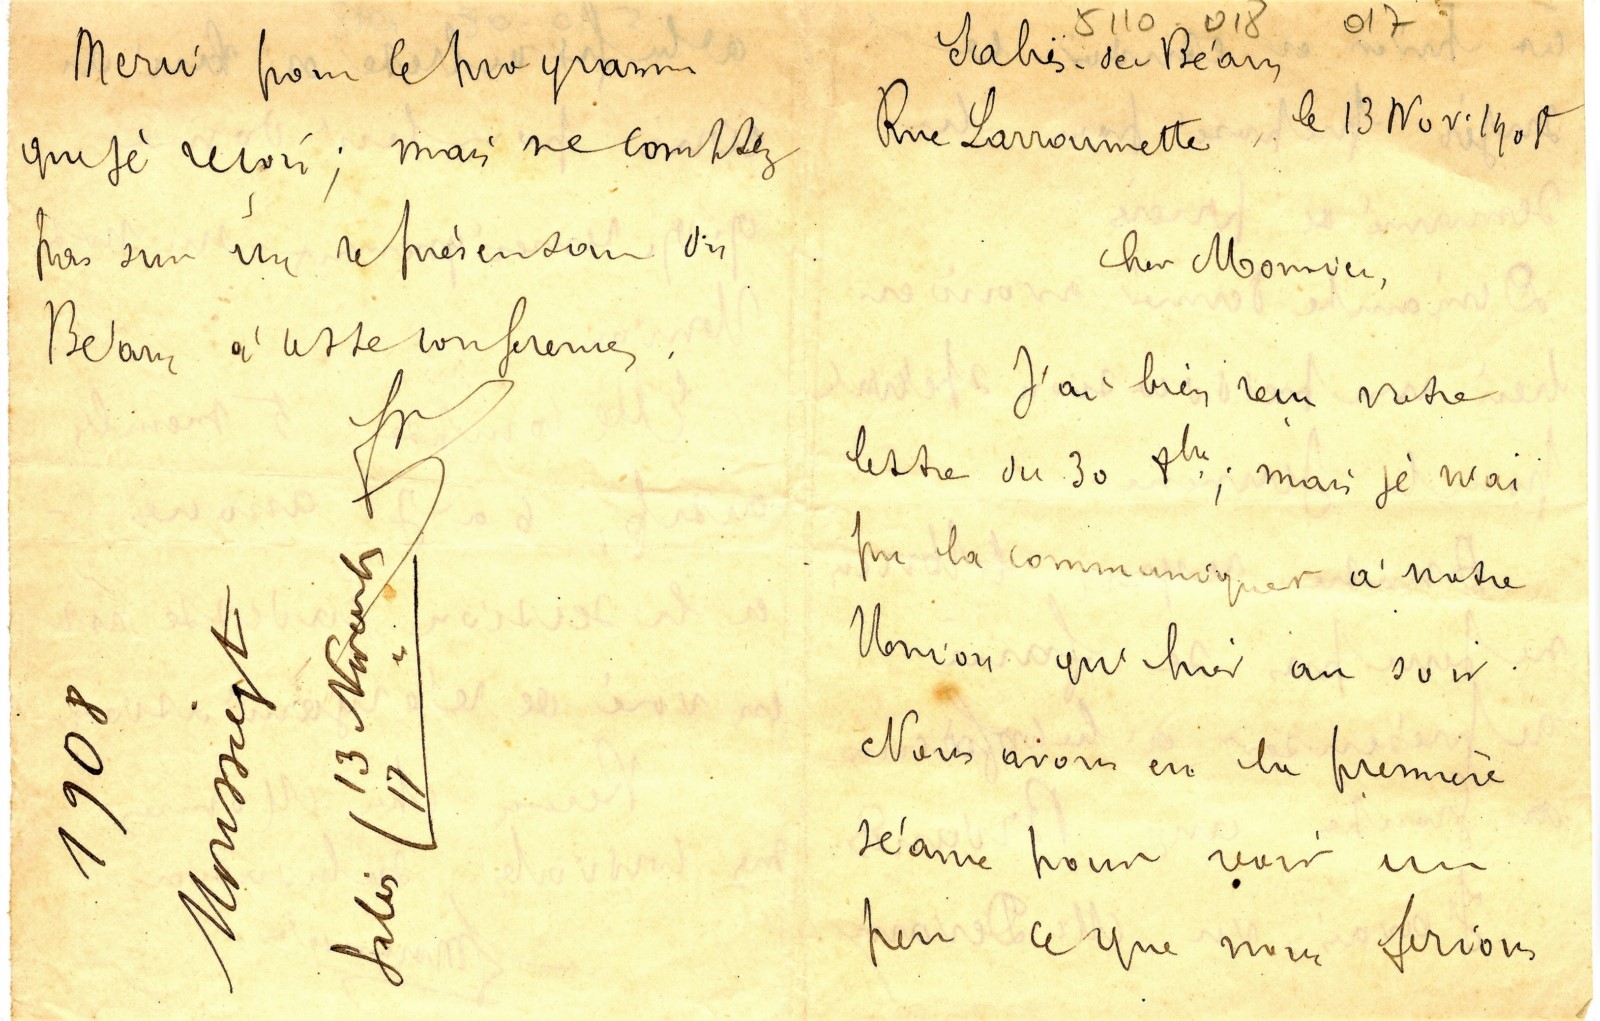 5110 018 017
Salies-de-Béarn
Rue Larroumette, le 13 Nov. 1908
Cher Monsieur,
J'ai bien reçu votre
lettre du 30 8bre; mais je n'ai
pu la communiquer à notre
Union qu'hier au soir.
Nous avons eu la première
séance pour voir un
peu ce que nous ferions
Merci pour le programme
que je reçois; mais ne comptez
pas sur un représentant du
Béarn à cette conférence.
Salies (13 Novembre
17 "
Moussiegt
1908